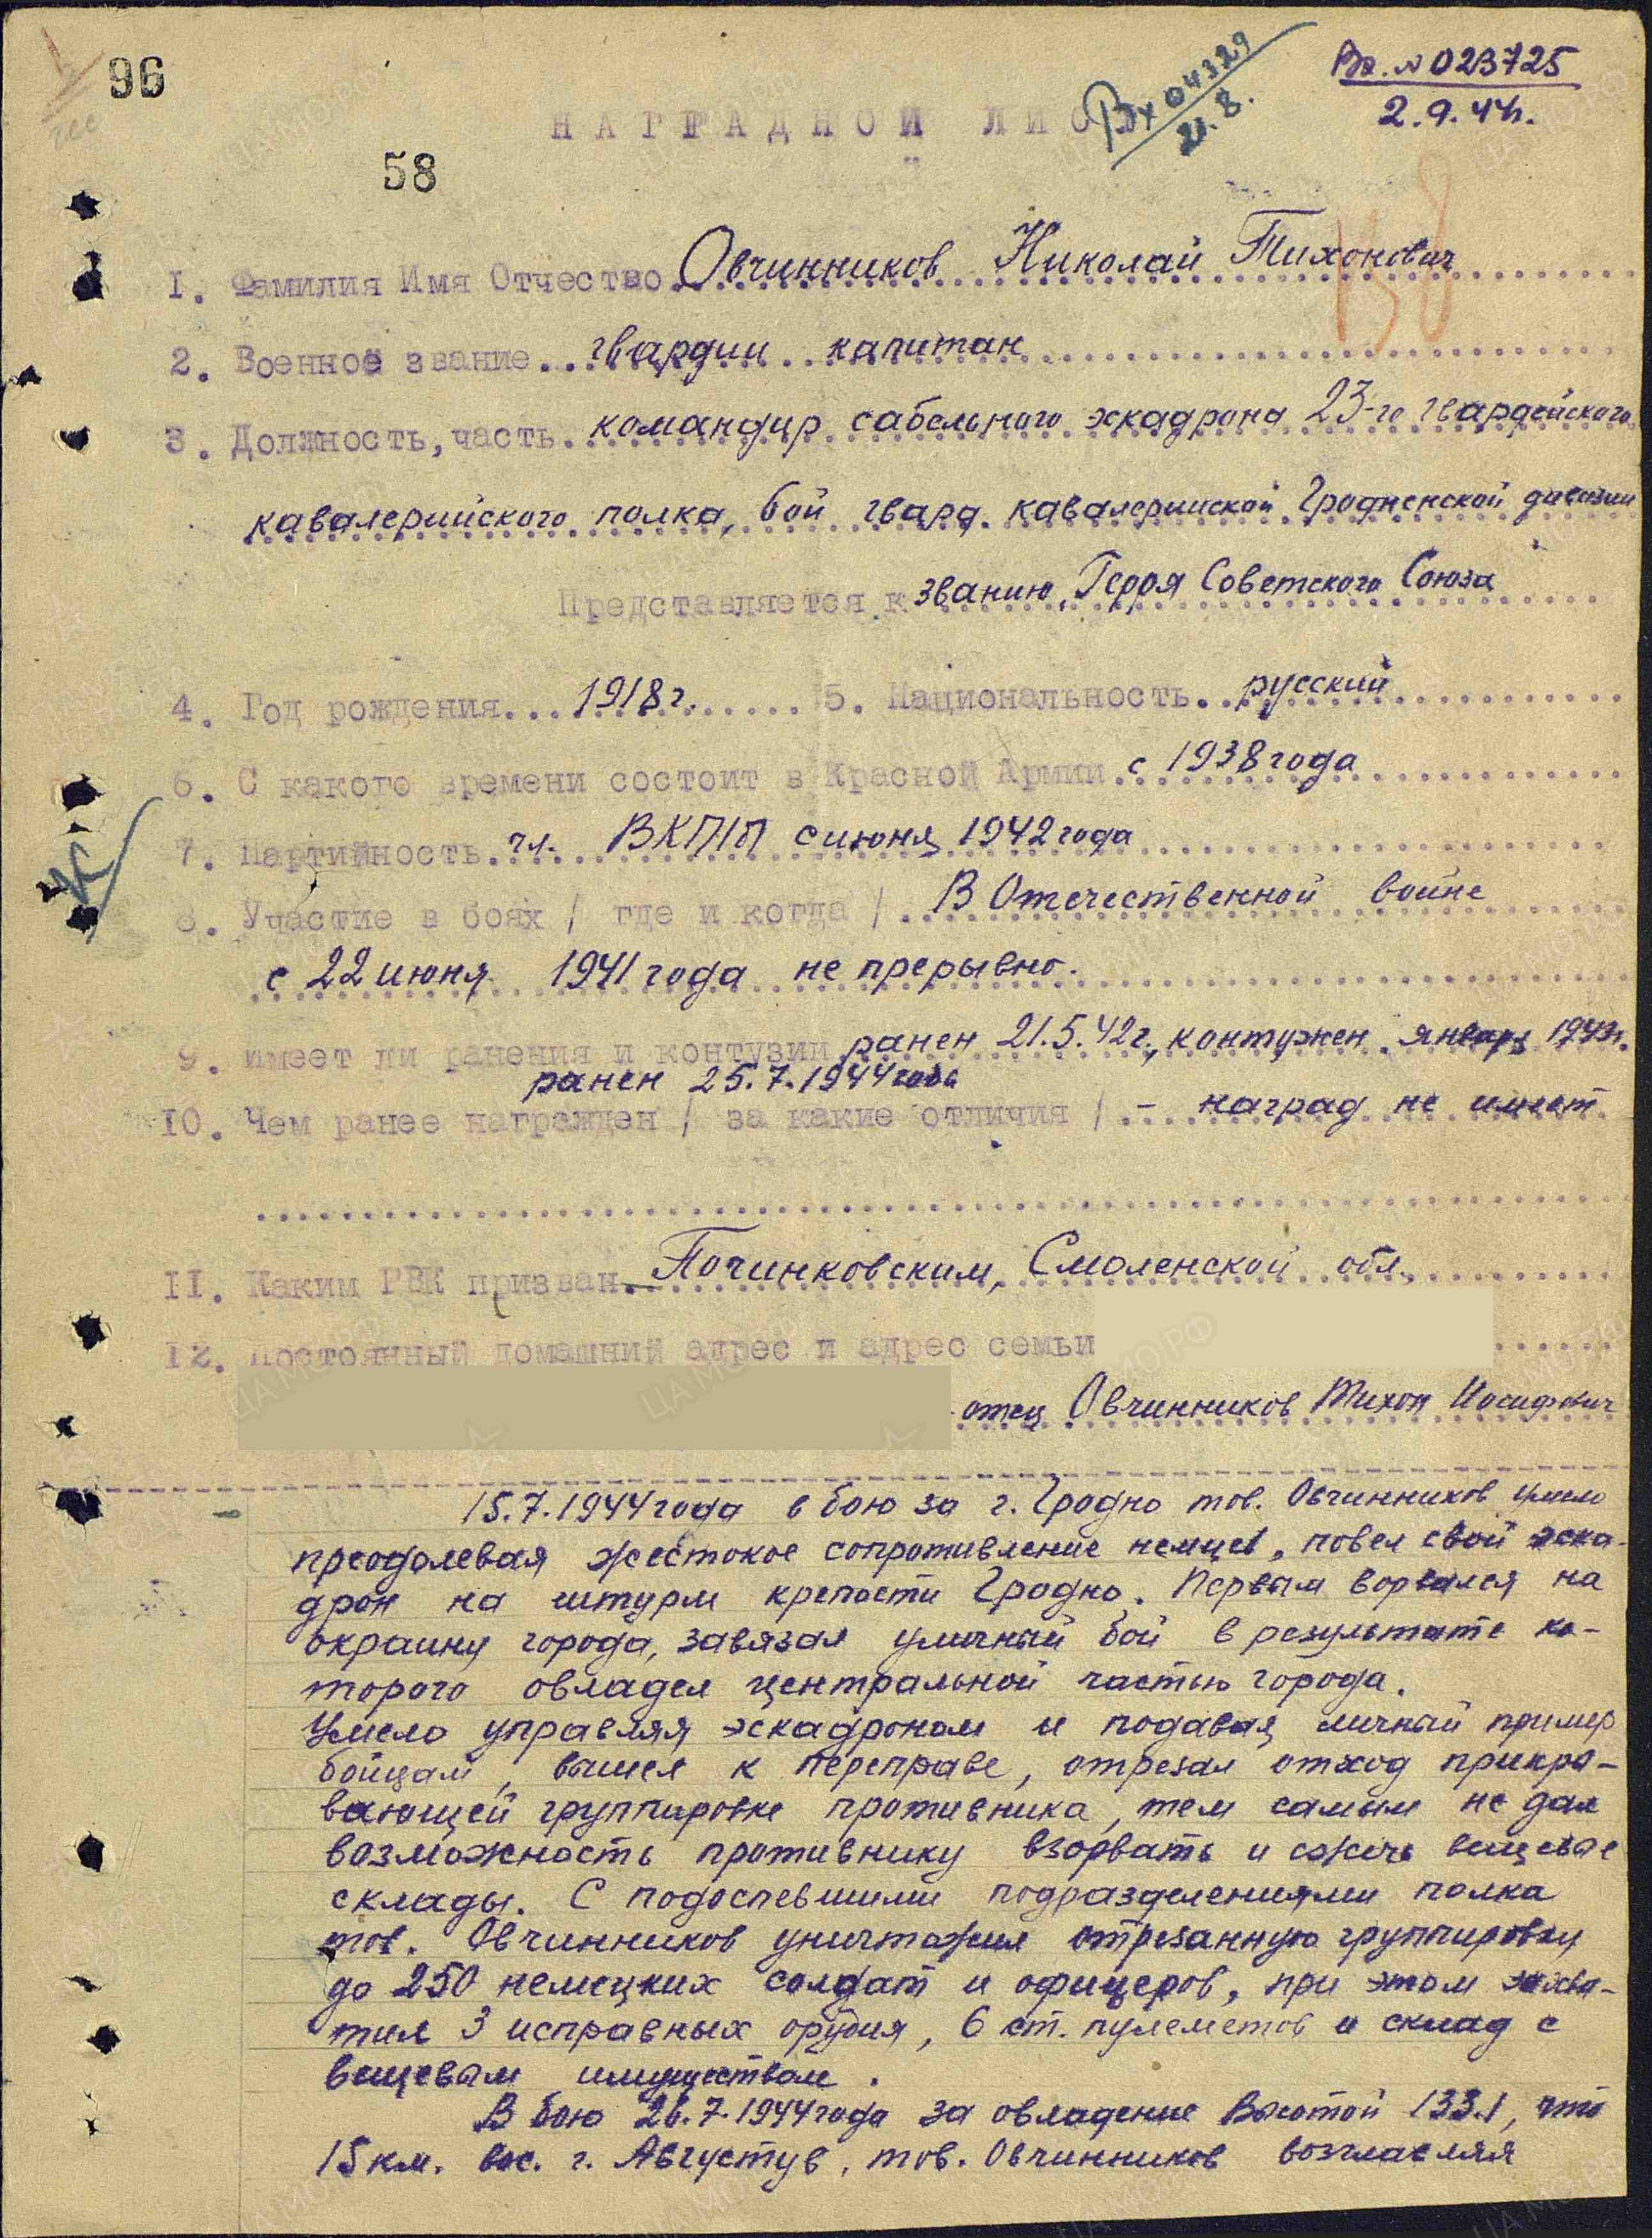 96
58
Вх 04329
21.8.
Вх. № 023725
2.9.44г.
НАГРАДНОЙ ЛИС
1. Фамилия Имя Отчество Овчинников Николай Тихонович
2. Военное звание гвардии капитан
3. Должность, часть командир сабельного эскадрона 23-го гвардейского
кавалерийского полка, 6ой гвард. кавалерийской Гродненской дивизии
Представляется к званию Героя Советского Союза
4. Год рождения 1918 г. 5. Национальность русский
6. С какого времени состоит в Красной Армии с 1938 года
7. Партийность чл. ВКП/б с июня 1942 года
8. Участие в боях / где и когда / В Отечественной войне
с 22 июня 1941 года не прерывно.
9. Имеет ли ранения и контузии ранен 21.5.42г., контужен январь 1943г.
ранен 25.7.1944 года
10. Чем ранее награжден / за какие отличия / - наград не имеет
11. Каким РВК призван Починковским, Смоленской обл.
12. Постоянный домашний адрес и адрес семьи
отец Овчинников Тихон Иосифович
15.7.1944 года в бою за г. Гродно тов. Овчинников умело
преодолевая жестокое сопротивление немцев, повел свой эска-
дрон на штурм крепости Гродно. Первым ворвался на
окраину города, завязал уличный бой в результате ко-
торого овладел центральной частью города.
Умело управляя эскадроном и подавая личный пример
бойцам, вышел к переправе, отрезал отход прикры-
вающей группировке противника, тем самым не дал
возможность противнику взорвать и сжечь вещевые
склады. С подоспевшими подразделениями полка
тов. Овчинников уничтожил отрезанную группировку
до 250 немецких солдат и офицеров, при этом захва-
тил 3 исправных орудия, 6 ст. пулеметов и склад с
вещевым имуществом.
В бою 26.7.1944 года за овладение Высотой 133.1, что
15 км. вос. г. Августув, тов. Овчинников возглавляя